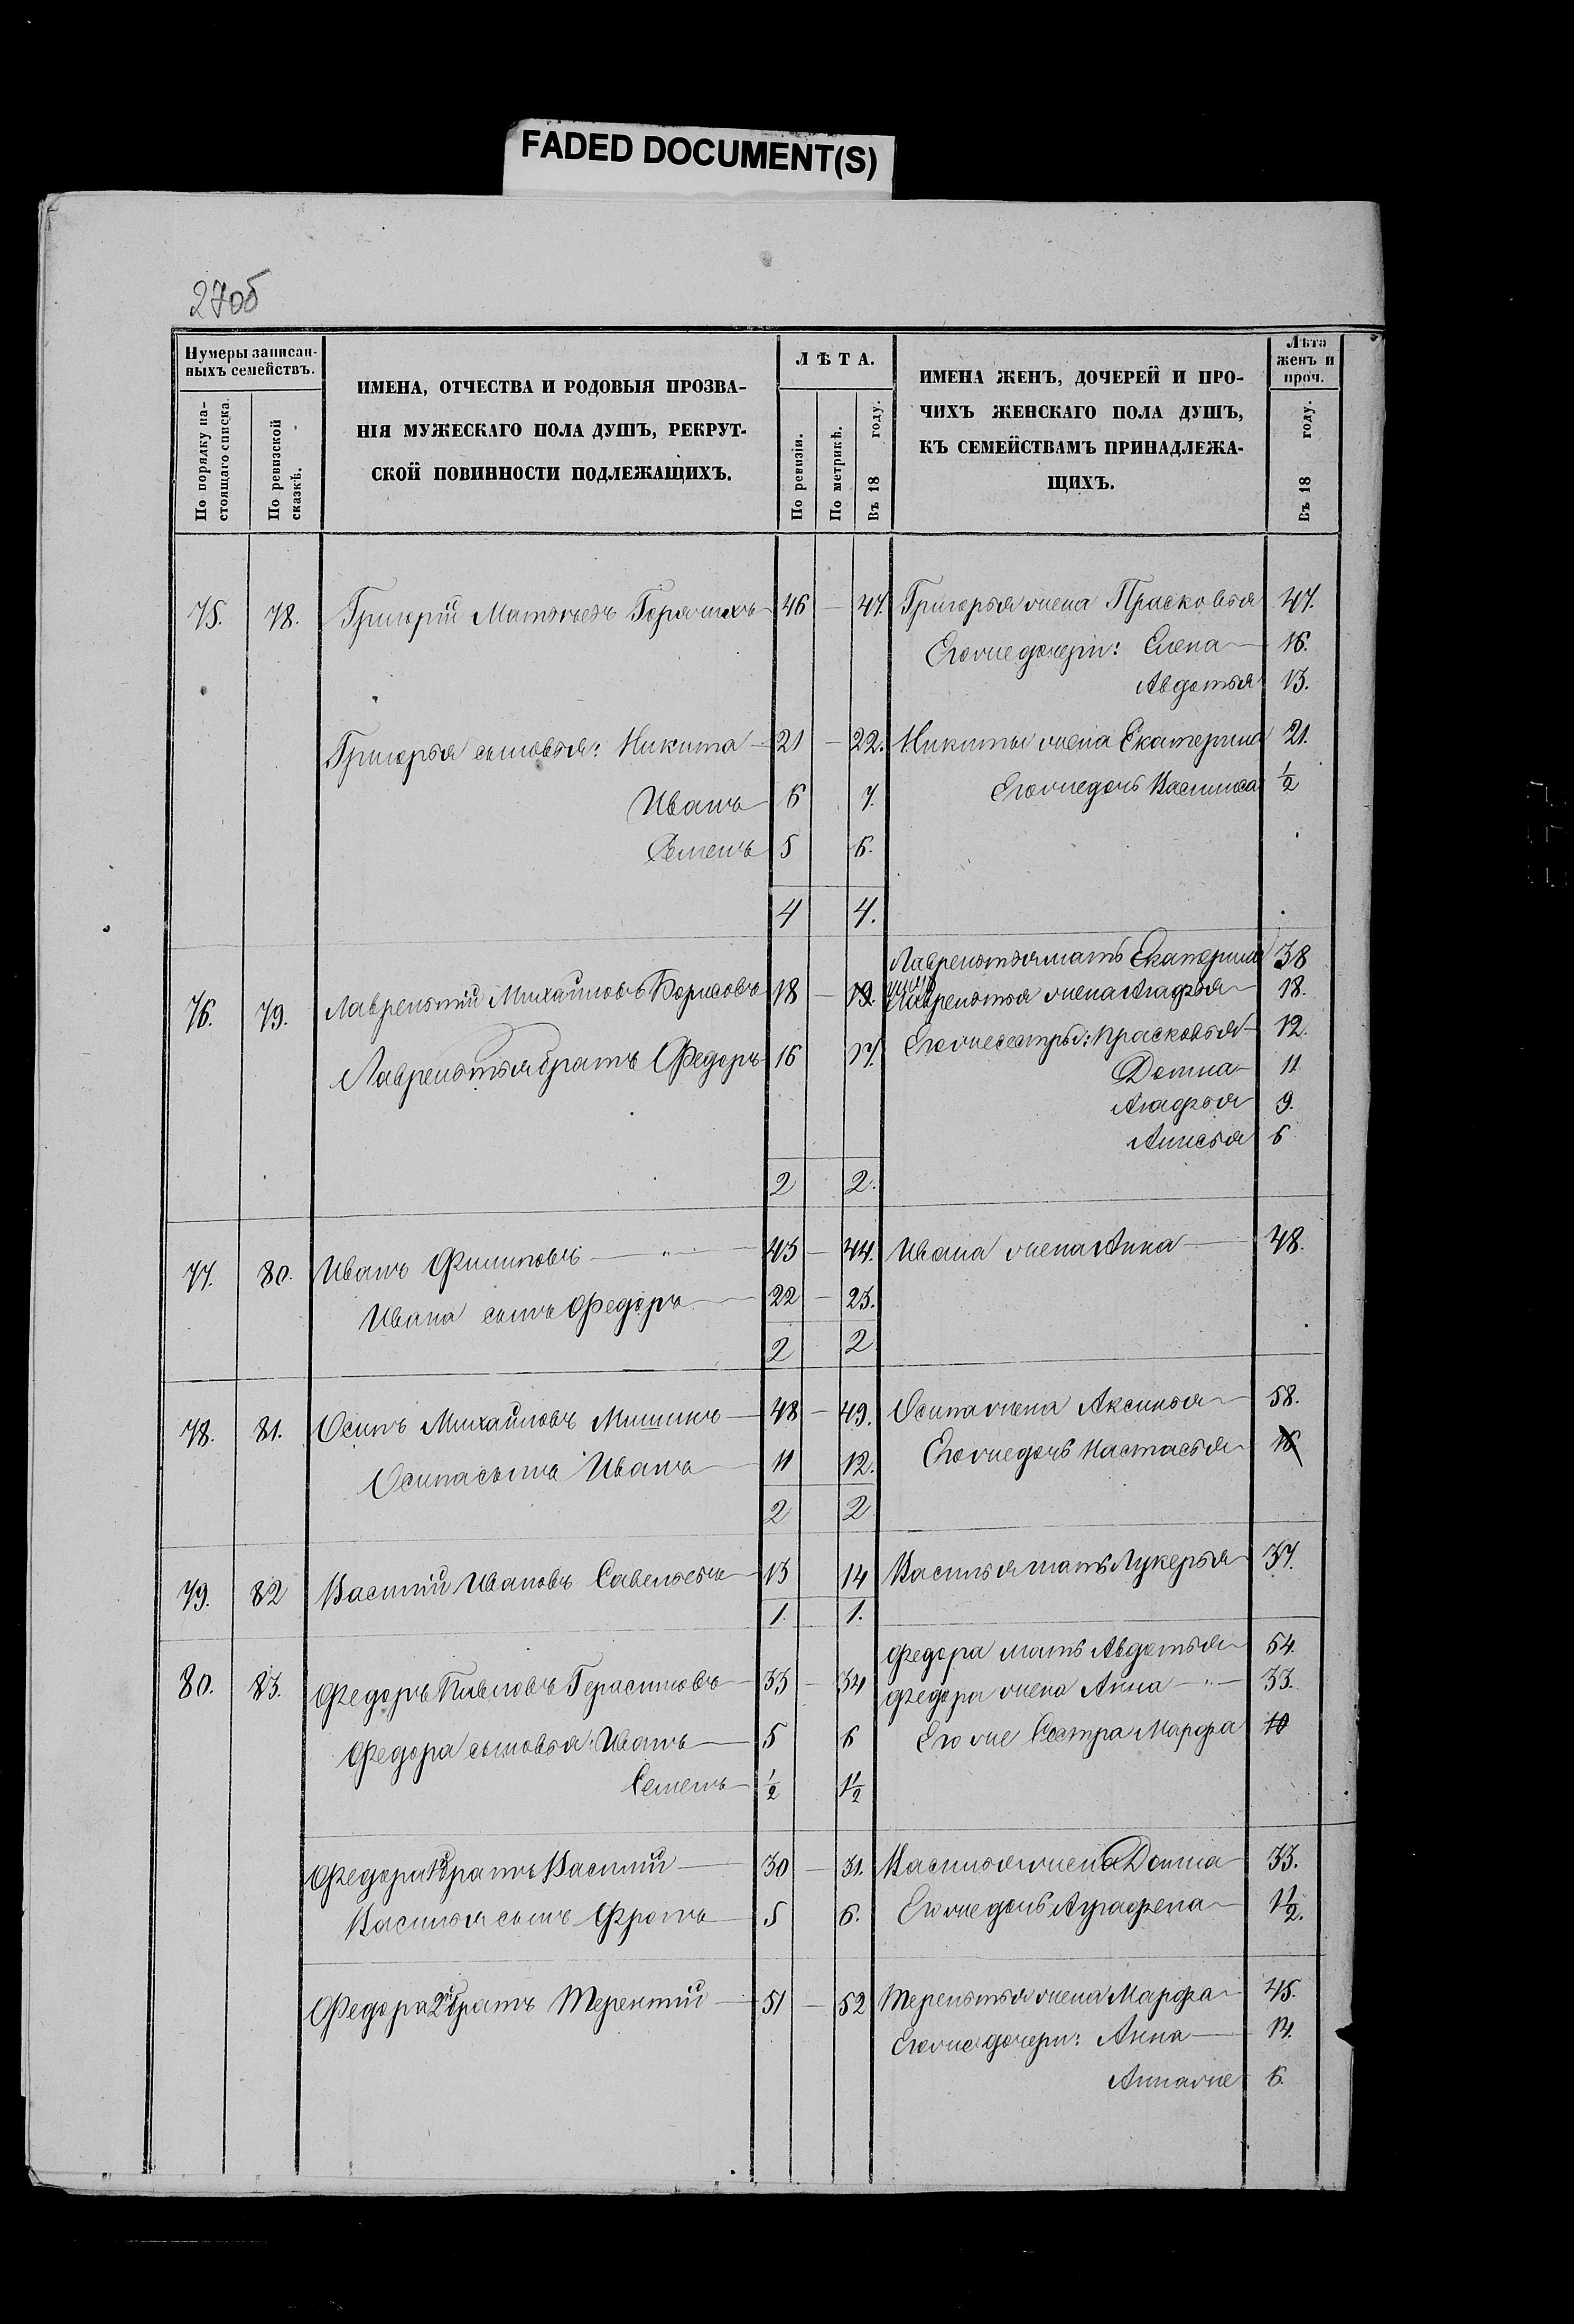 FADED DOCUMENT(S)
270б
Нумеры записан-
ныхъ семействъ.
По порядку на-
стоящаго списка.
По ревизской
сказкѣ.
ИМЕНА, ОТЧЕСТВА И РОДОВЫЯ ПРОЗВА-
НІЯ МУЖЕСКАГО ПОЛА ДУШЪ, РЕКРУТ-
СКОЙ ПОВИННОСТИ ПОДЛЕЖАЩИХЪ.
ЛѢТА.
По ревизіи.
По метрикѣ.
Въ 18 году.
ИМЕНА ЖЕНЪ, ДОЧЕРЕЙ И ПРО-
ЧИХЪ ЖЕНСКАГО ПОЛА ДУШЪ,
КЪ СЕМЕЙСТВАМЪ ПРИНАДЛЕЖА-
ЩИХЪ.
Лѣта
женъ и
проч.
Въ 18 году.
75. 78. Григорій Матвѣевъ 46 — 47. Григорья жена Прасковья 47.
Его же дочери: Елена — 16.
Авдотья 13.
Григорья сыновья: Никита — 21 — 22. Никиты жена Екатерина 21.
Иванъ 6 7. Его же дочь Василиса 1/2
Семенъ 5 6.
4 4.
Лаврентья мать Екатерина 38
76. 79. Лаврентій Михайловъ Борисовъ 18 — 19. Лаврентья жена Агафья — 18.
Лаврентья братъ Федоръ 16 17. Его же сестры: Прасковья — 12.
Домна — 11
Агафья 9.
Анисья 6
2 2.
77. 80. Иванъ Филиповъ — " — 43 — 44. Ивана жена Анна — 48.
Ивана сынъ Федоръ — 22 — 23.
2 2
78. 81. Осипъ Михайловъ Мишинъ — 48 — 49. Осипа жена Аксинья — 58.
Осипа сынъ Иванъ — 11 12. Его же дочь Настасья — 16
2 2
79. 82 Василій Ивановъ Савельевъ — 13 14 Василья мать Лукерья 37.
1. 1.
Федора мать Авдотья — 54.
80. 83. Федоръ Павловъ Герасимовъ — 33 — 34 Федора жена Анна — " — 33.
Федора сыновья: Иванъ — 5 6 Его же Сестра Марфа 10
Семенъ — 1/2 1 1/2
Федора 1й братъ Василій — 30 — 31. Василья жена Домна — 33.
Василья сынъ Фролъ — 5 6. Его же дочь Аграфена — 1 1/2.
Федора 2й братъ Терентій — 51 — 52 Терентья жена Марфа — 45.
Его же дочери: Анна — 14.
Анна же 6.